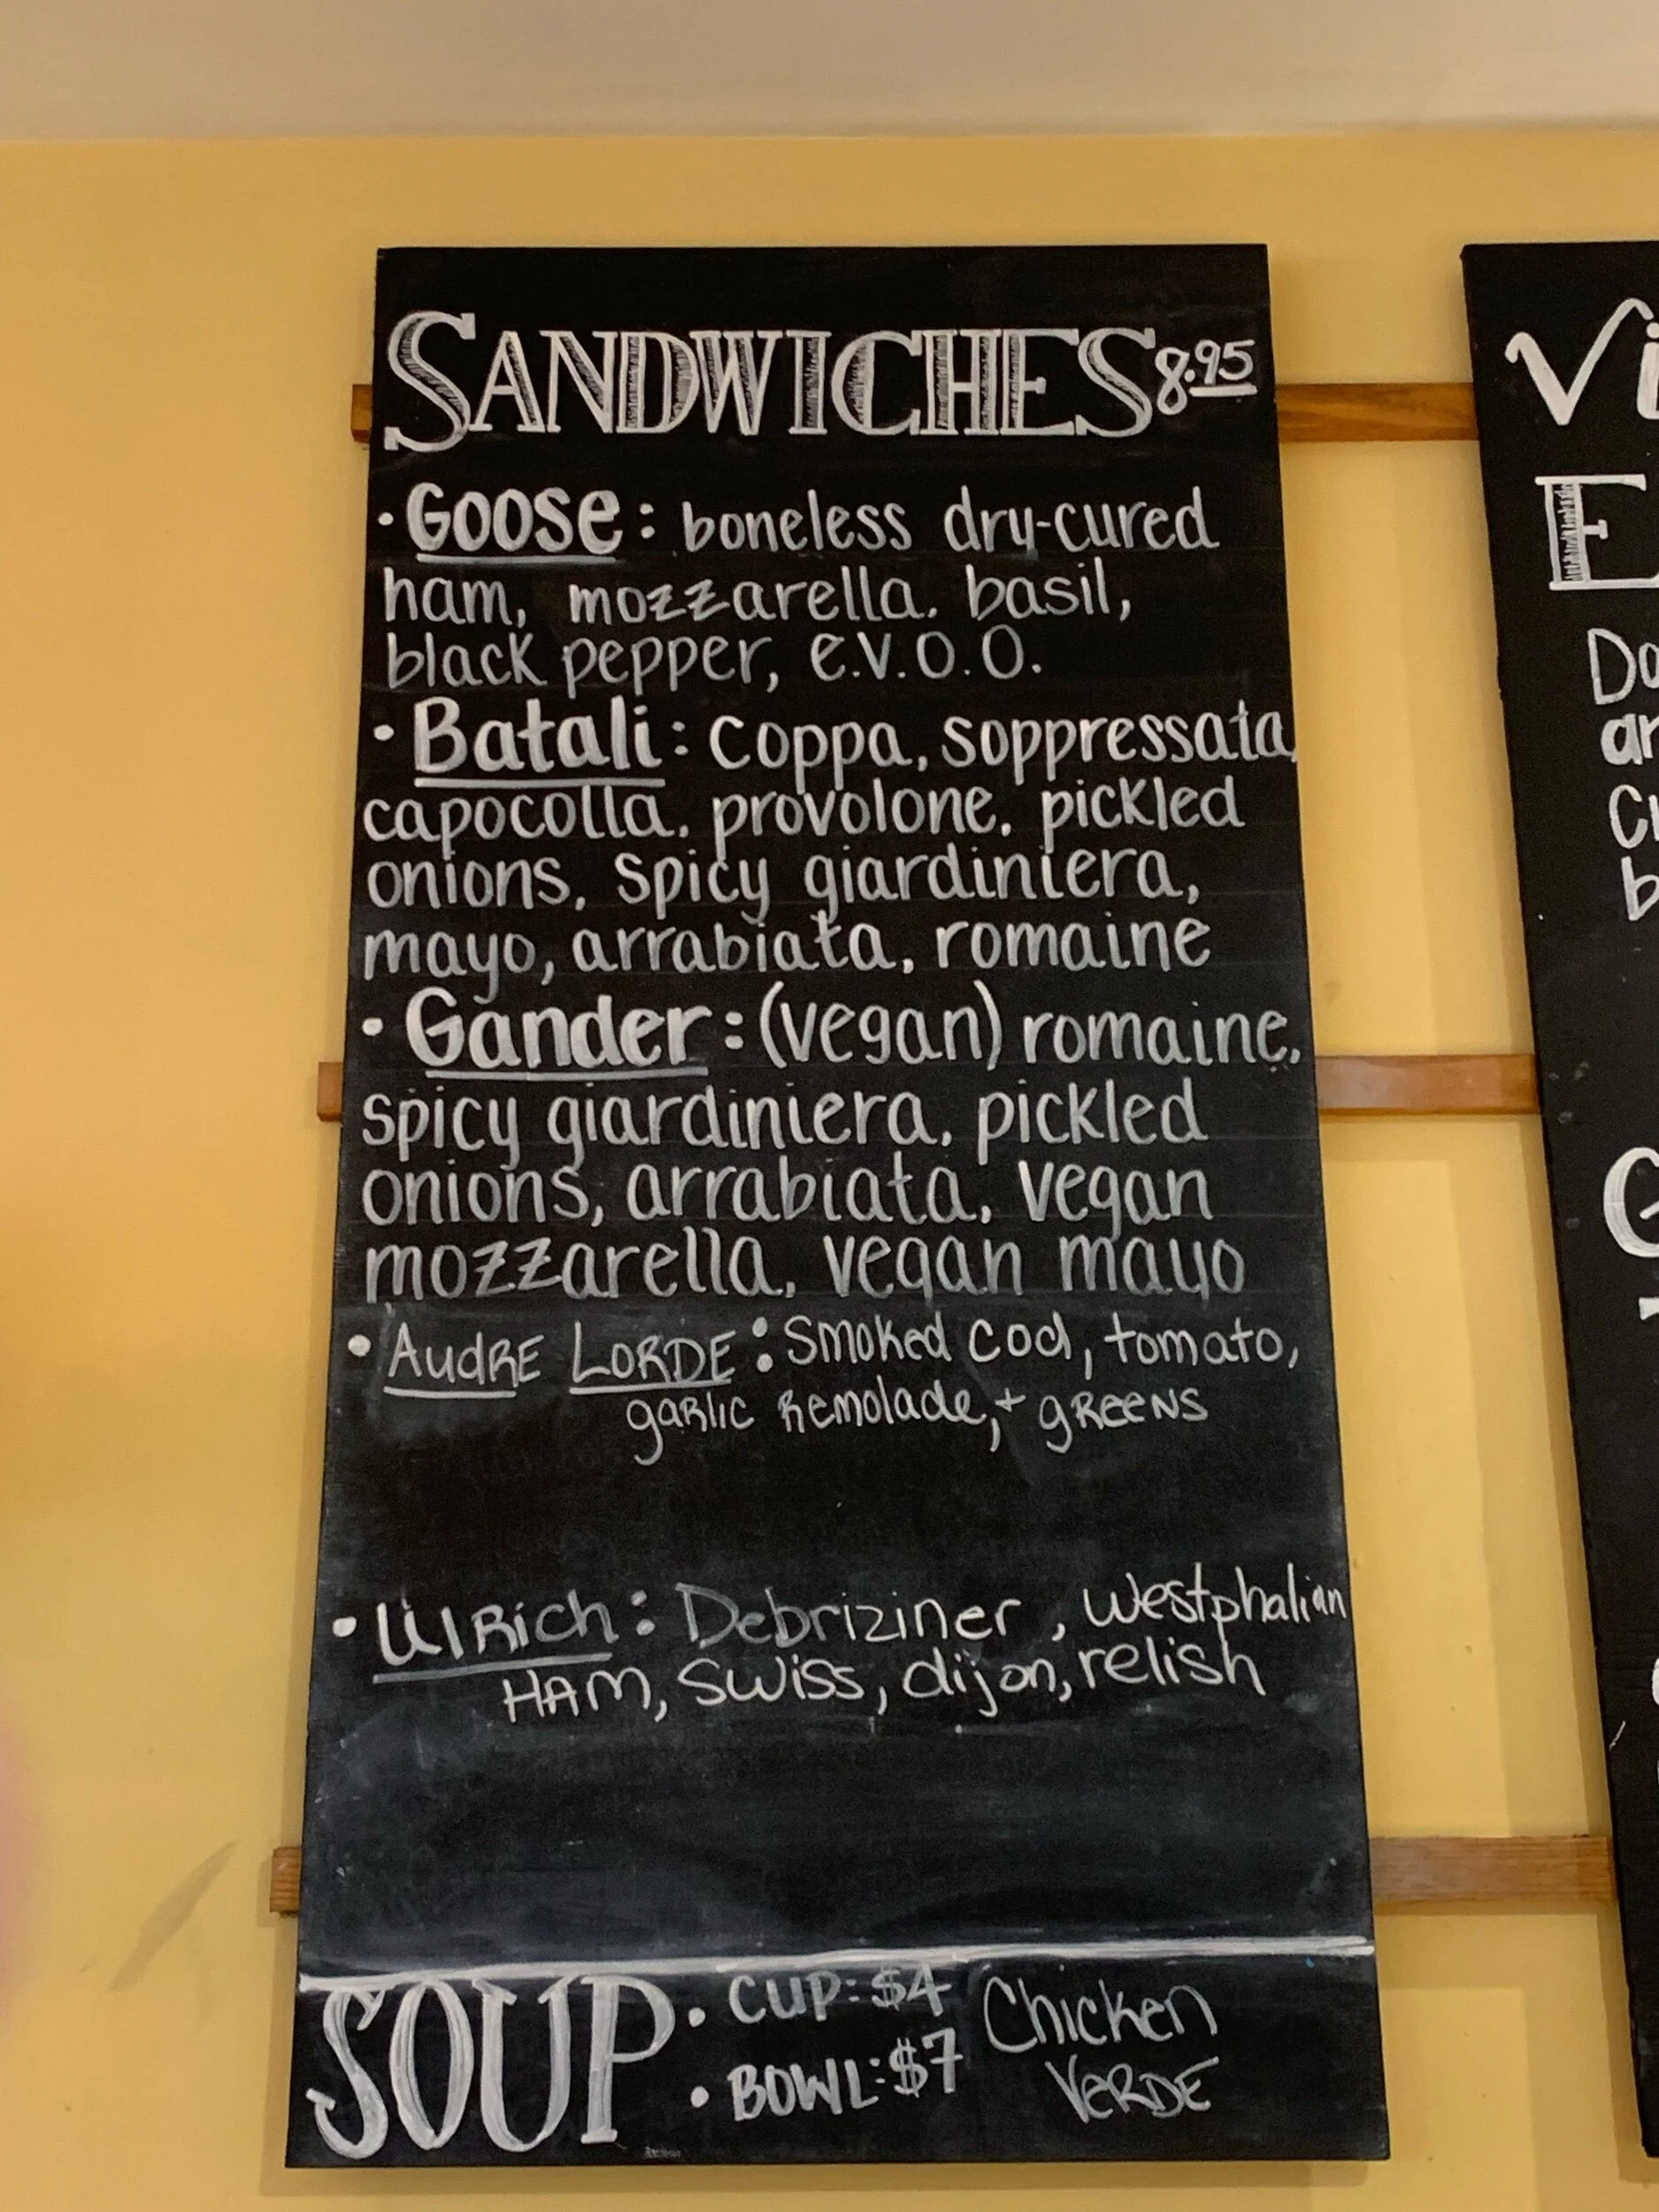 SANDWICHES 8.95
· Goose: boneless dry-cured
ham, mozzarella, basil,
black pepper, e.v.o.o.
· Batali: coppa, soppressata,
capocolla, provolone, pickled
onions, spicy giardiniera,
mayo, arrabiata, romaine
· Gander: (vegan) romaine,
spicy giardiniera, pickled
onions, arrabiata, vegan
mozzarella, vegan mayo
• AUDRE LORDE: Smoked cod, tomato,
garlic Remolade, + greens
• Ulrich: Debriziner, westphalian
HAM, Swiss, dijon, relish
SOUP • CUP: $4
• BOWL: $7
Chicken
VERDE
Vi
E
Do
ar
b
G